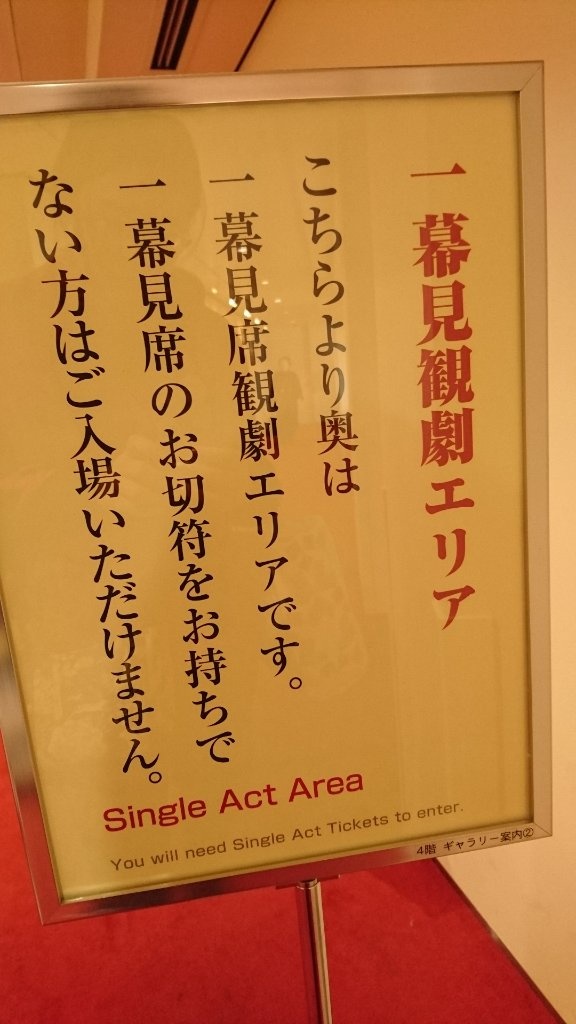 一幕見観劇エリア
こちらより奥は
一幕見席観劇エリアです。
一幕見席のお切符をお持ちで
ない方はご入場いただけません。
Single Act Area
You will need Single Act Tickets to enter.
4階 ギャラリー案内②